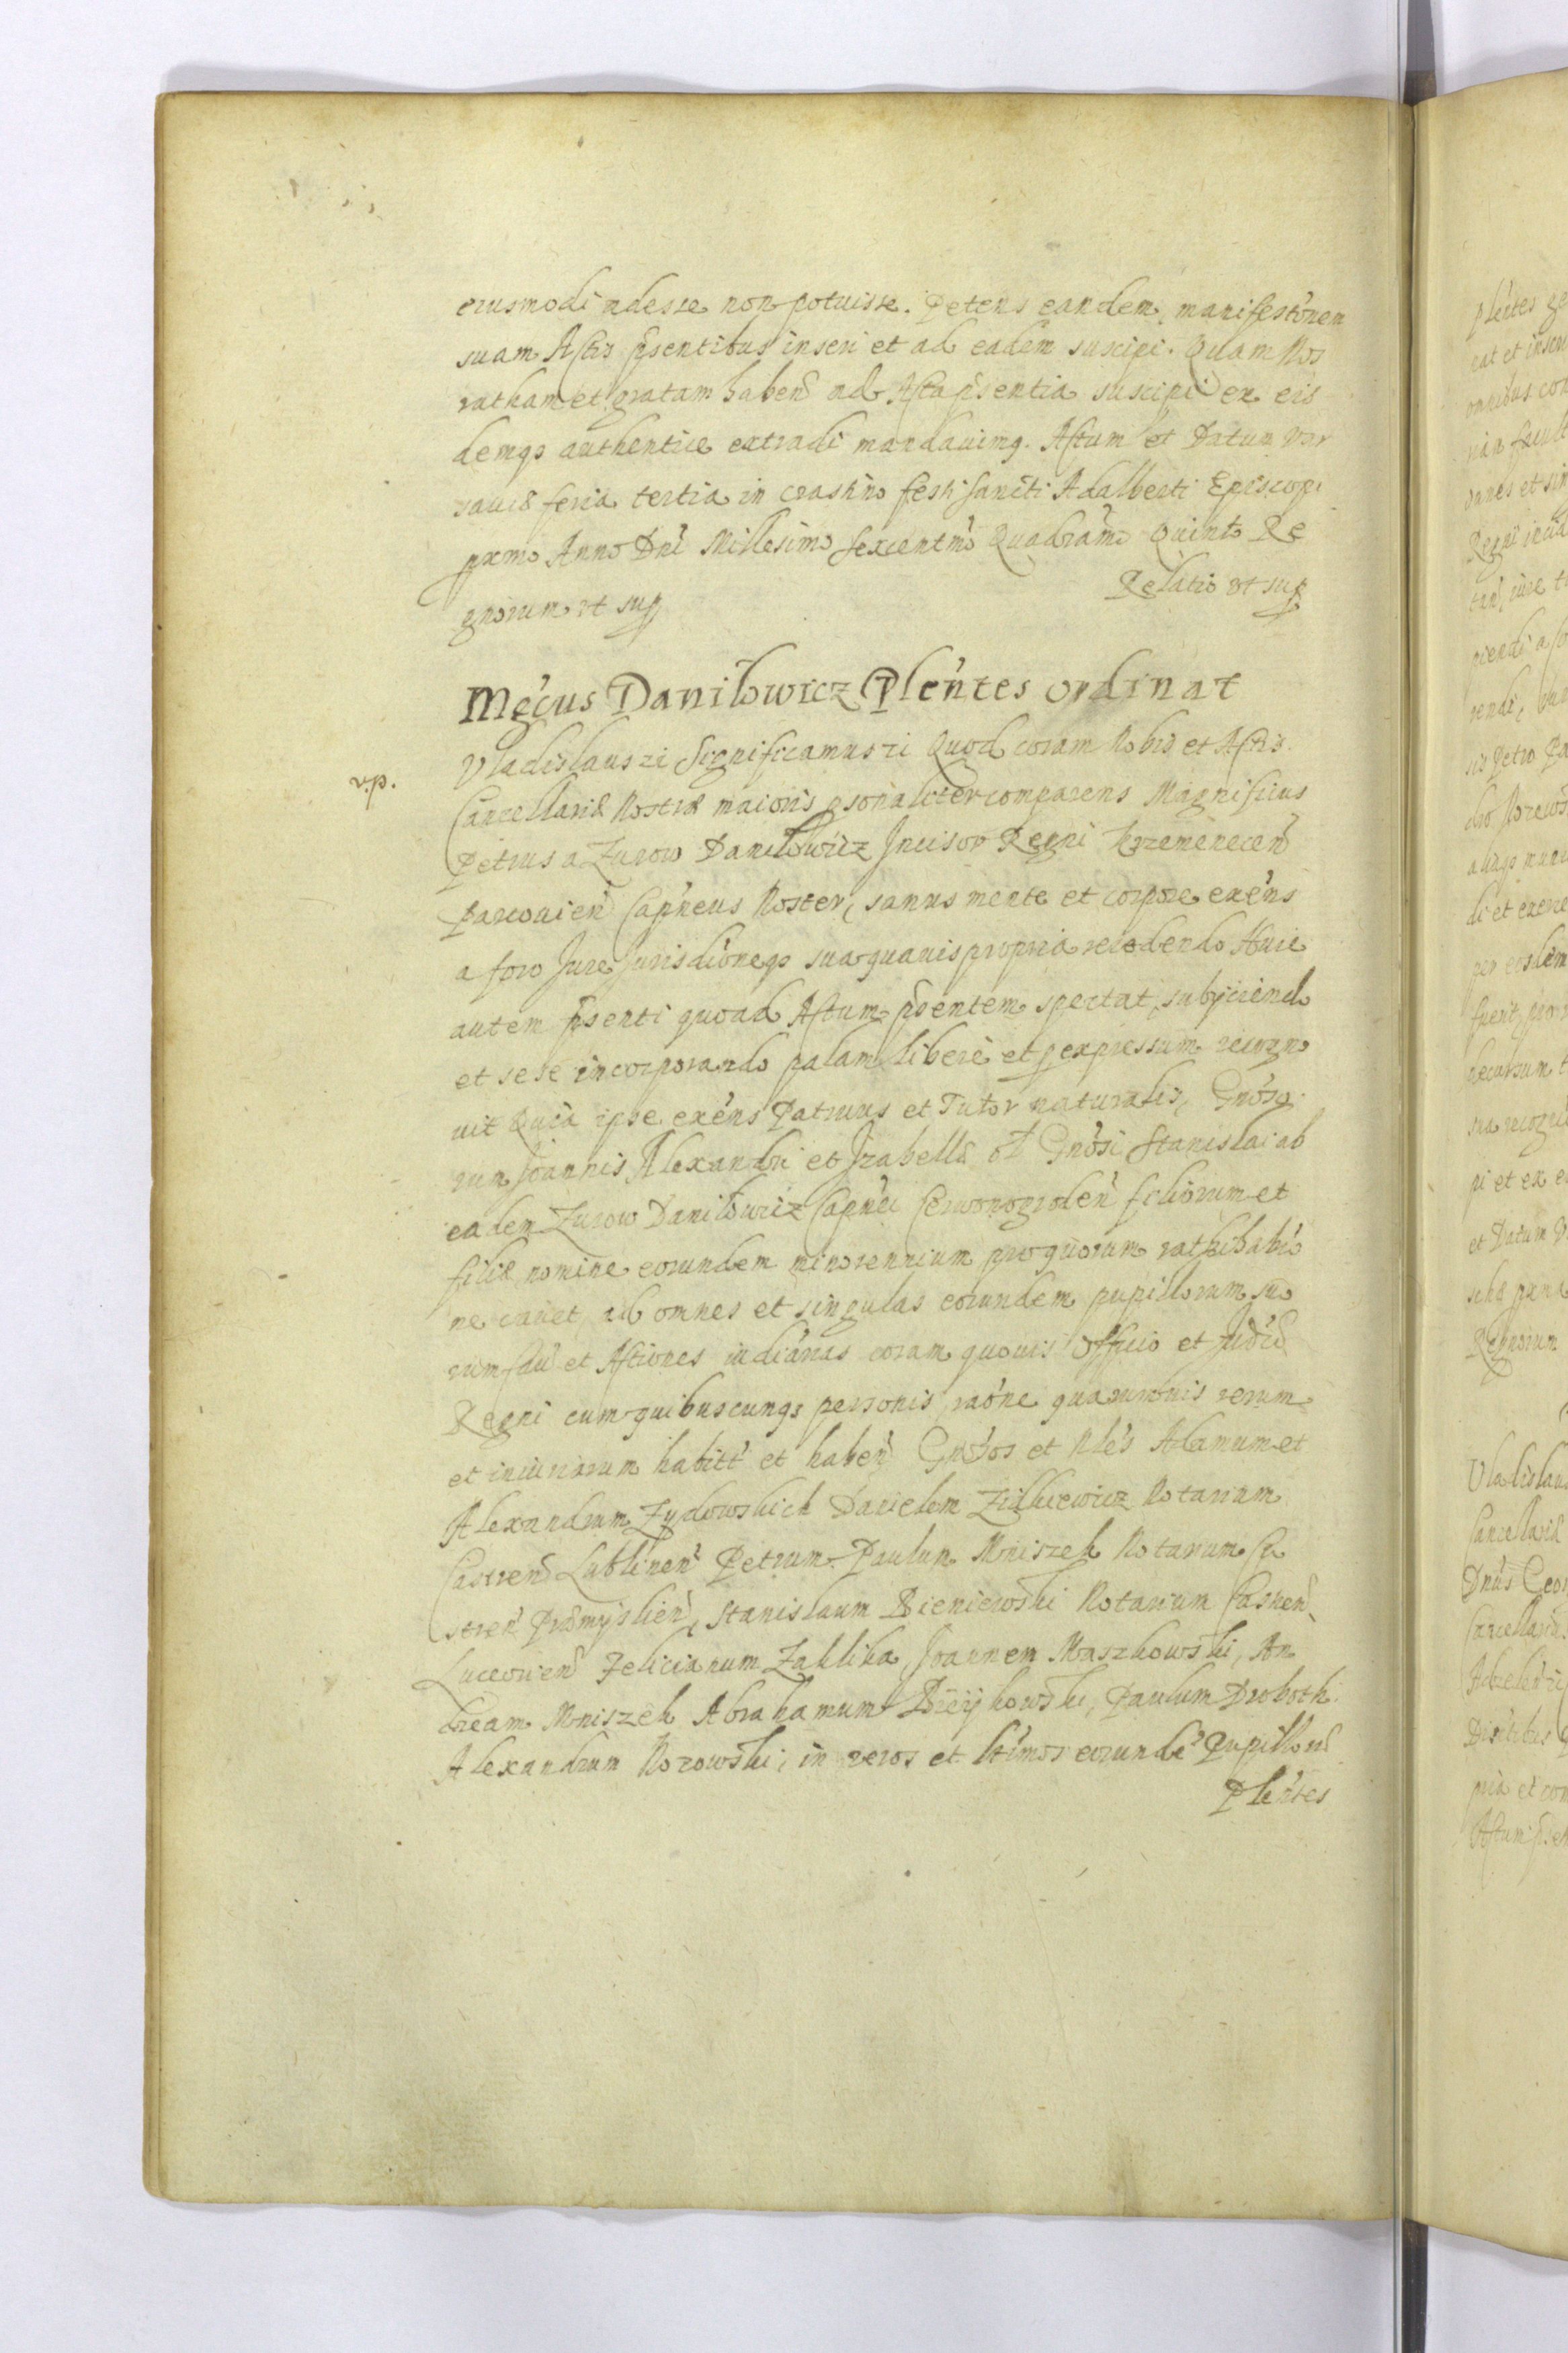 eiusmodi adesse non potuisse. Petens eandem manifestõnem
suam Actis p̃sentibus inseri et ad eadem suscipi. Quam Nos
ratham et gratam habeñ ad Acta p̃sentia suscipi ex eis
demqȝ authentice extradi mandauimq. Actum et Datum Var
sauiæ feria tertia in crastino festi Sancti Adalberti Episcopi
pxmo Anno Dnĩ Millesimo Sexcentmõ Quadramõ Quinto Re
gnorum ut sup
Relatio ut sup
Mgcus Daniłowicz Plẽntes ordinat
v.p.
Vladislaus zi Significamus zi Quod coram Nobis et Actis
Cancellariæ Nostræ maioris psonaliter comparens Magnificus
Petrus a Zurow Daniłowicz Incisor Regni Krzemenecen̄
Parcouien̄ Capneus Noster, sanus mente et corpore exẽns
a foro Jure Jurisdiõneqȝ sua quauis propria recedendo Huic
autem p̃senti quoad Actum p̃sentem spectat, subijciendo
et sese incorporando palam libere et p expressum recogno
uit Quia ipse exẽns Patruus et Tutor naturalis, Gnõso
rum Joannis Alexandri et Izabellæ ol Gnõsi Stanislai ab
eadem Zurow Daniłowicz Capnei Czerwonogroden̄ filiorum et
filiæ nomine eorundem minorennium pro quorum rathihabiõ
ne cauet, ad omnes et singulas eorundem pupillorum suo
rum Cau et Actiones iudiarias coram quouis Officio et Judiõ
Regni cum quibuscunqȝ personis, raõne quarumuis rerum
et iniuriarum habitt et haben̄ Gnõsos et Nles Adamum et
Alexandrum Zydowskich Danielem Zielkiewicz Notarium
Castren̄ Lublinen̄ Petrum Paulum Mniszek Notarium Ca
stren̄ Præmyslien̄, Stanislaum Bieniewski Notarium Castren̄
Luceorien̄ Felicianum Zaklika, Joannem Maszkowski, An
dream Mniszek Abrahamum Paulum Droboth
Alexandrum Rozowski, in veros et ltimos eorundẽ Pupillorũ
Plẽntes